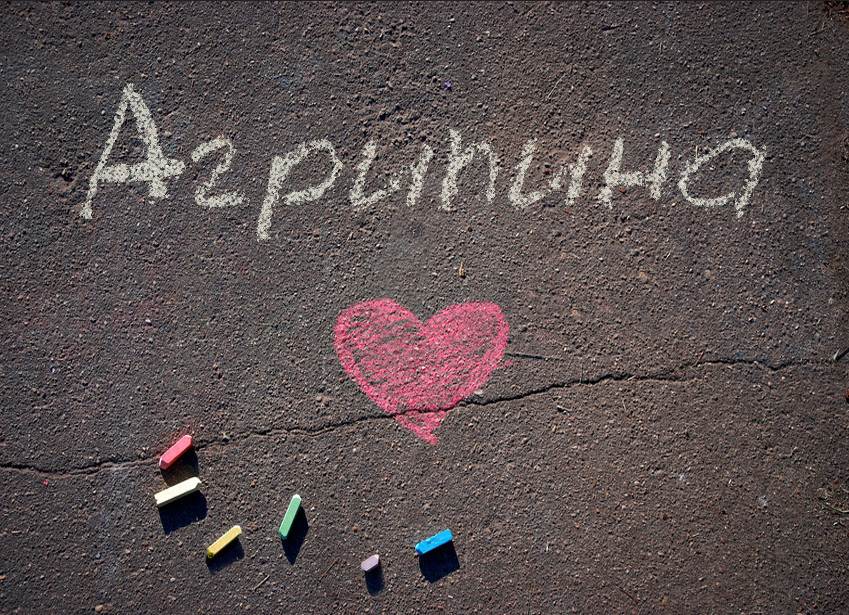 Агрипина